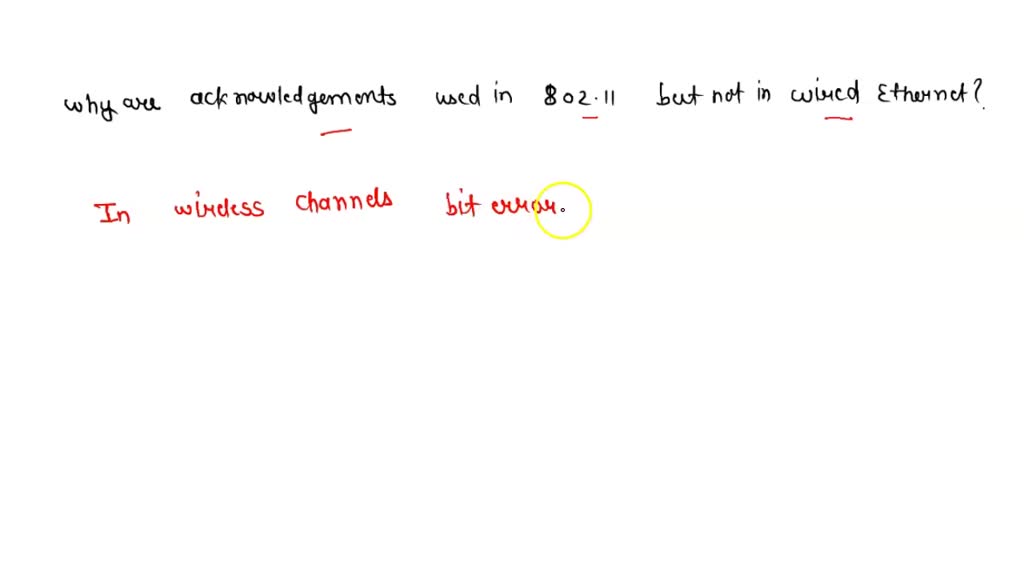 why are acknowledgements used in 802.11 but not in wired Ethernet?
In wireless channels bit error.